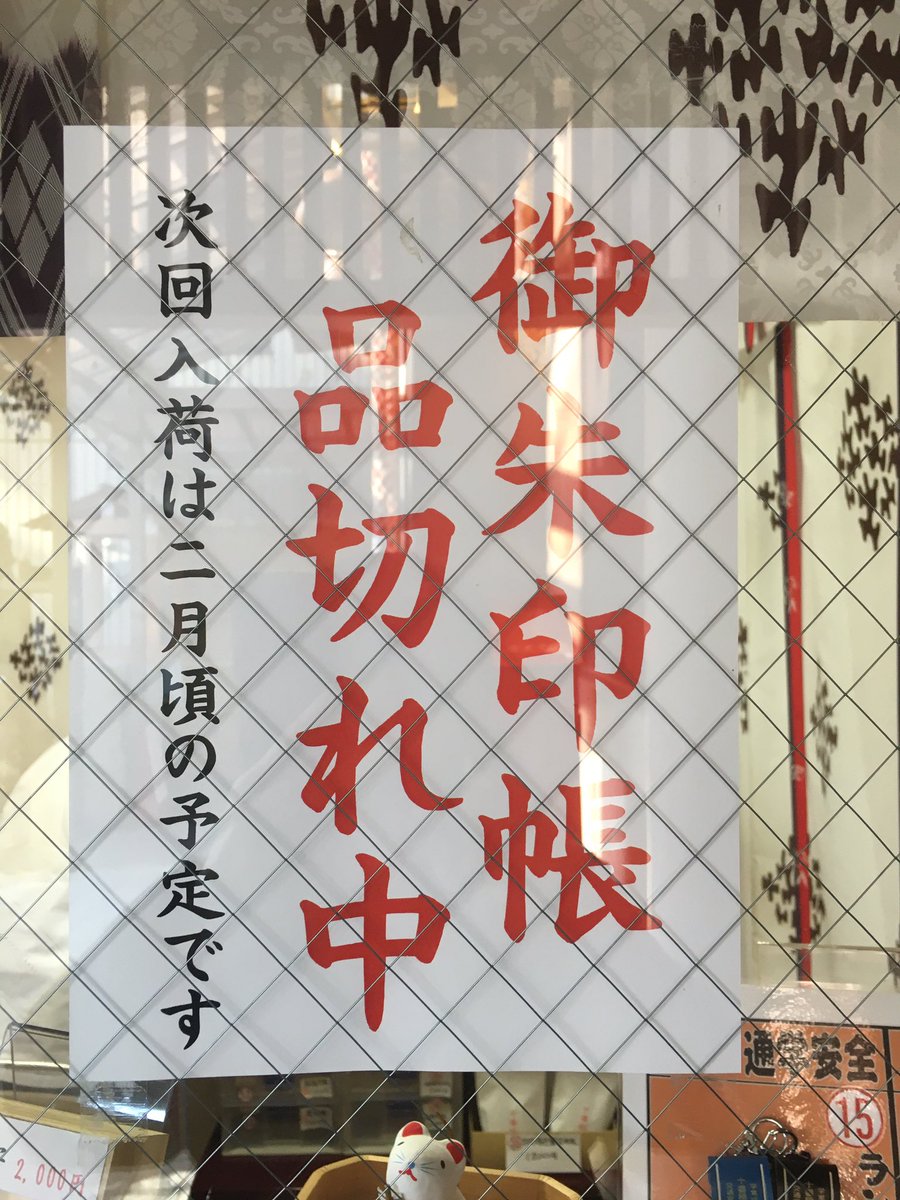 御朱印帳
品切れ中
次回入荷は二月頃の予定です
通学安全
⑮
ラ
2,000円